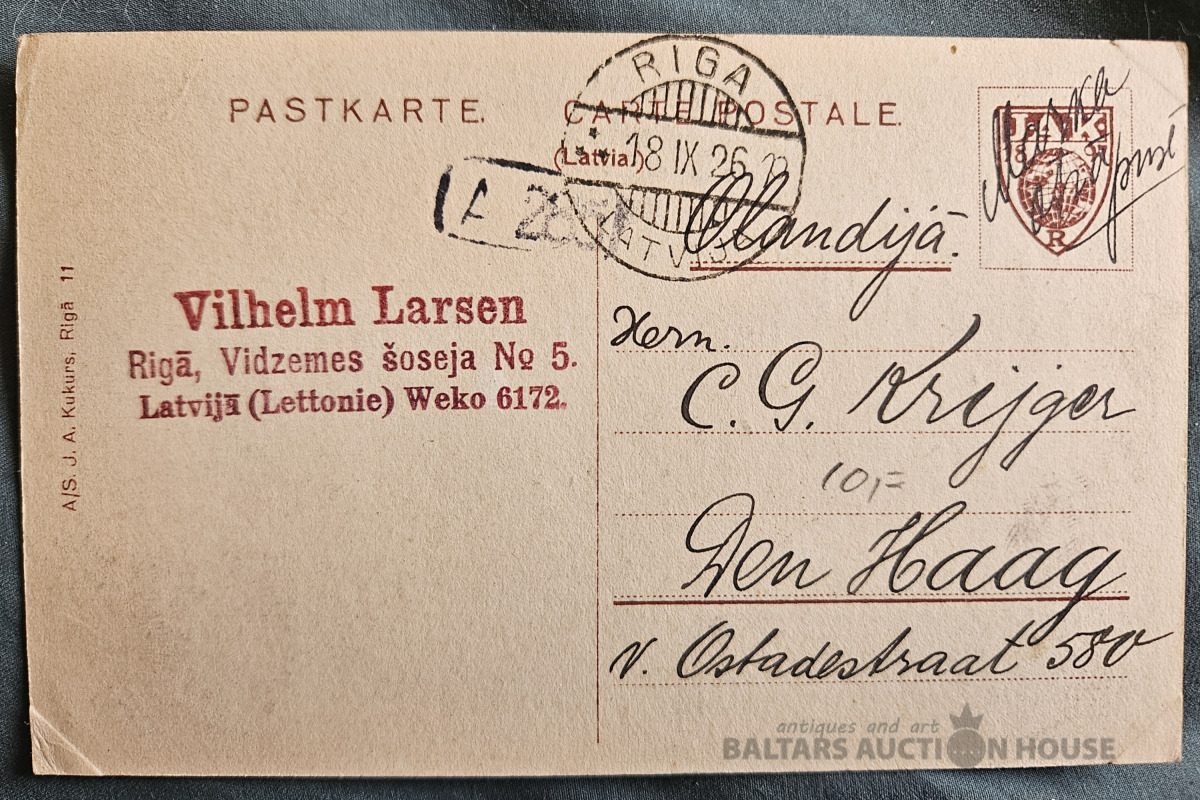 PASTKARTE. CARTE POSTALE.
(Latvia.)
RIGA
18 IX 26
LATVIJA
J. A. K.
18 97
R
Marka
otrā pusē
A
Olandijā.
Vilhelm Larsen
Rigā, Vidzemes šoseja № 5.
Latvijā (Lettonie) Weko 6172.
A/S. J. A. Kukurs, Rigā 11
Hern.
C. G. Krijger
10,=
Den Haag
v. Ostadestraat 580
antiques and art
BALTARS AUCTION HOUSE